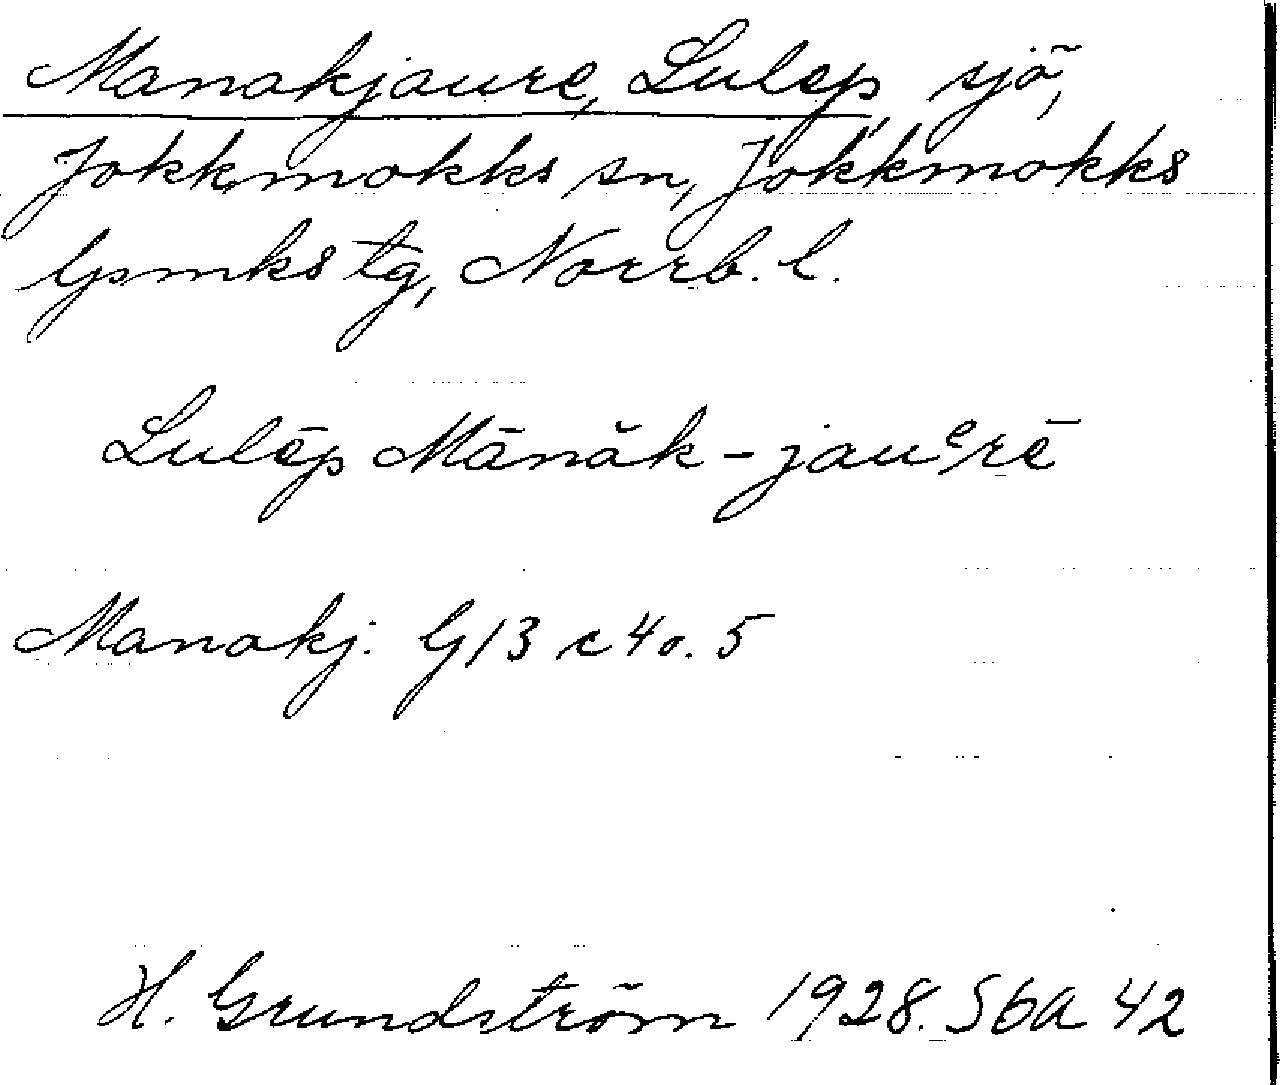 Manakjaure, Lulep, sjö,
Jokkmokks sn, Jokkmokks
lpmks tg, Norrb. l.
Lulēp Mānăk-jauᵉrē
Manakj. G13 c 4 o. 5
H. Grundström 1928. Sba 42